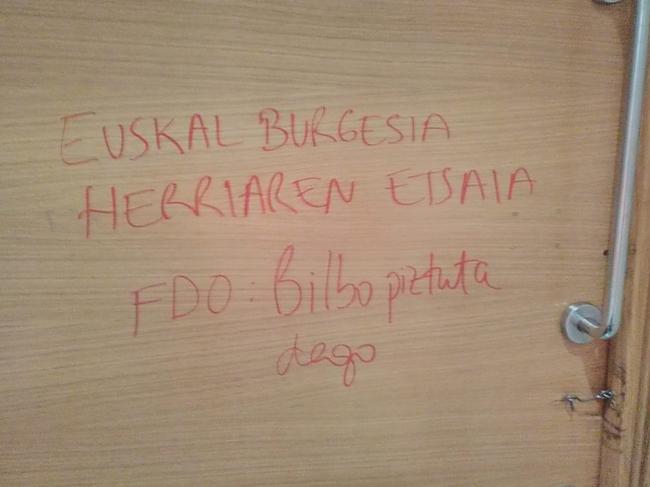 EUSKAL BURGESIA
HERRIAREN ETSAIA
FDO: Bilbo piztuta
dago